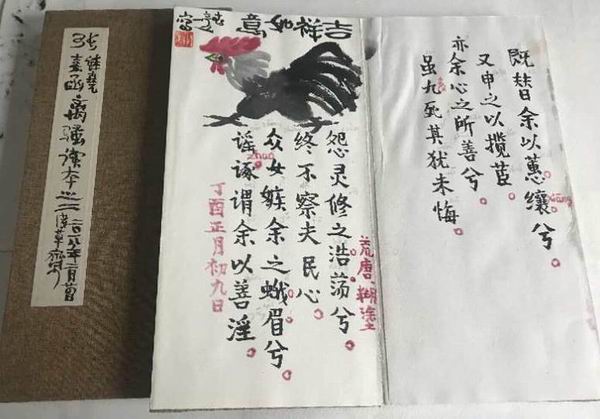 既替余以蕙纕兮
又申之以揽茝
亦余心之所善兮
虽九死其犹未悔
吉祥如意
荒唐.糊塗
怨灵修之浩荡兮
终不察夫民心
众女嫉余之蛾眉兮
zhuo
谣诼谓余以善淫
丁酉正月初九日
离骚读本之二